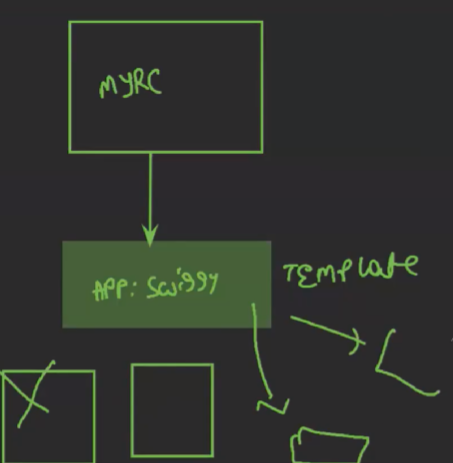 MYRC
APP: Swiggy
TEMPLate